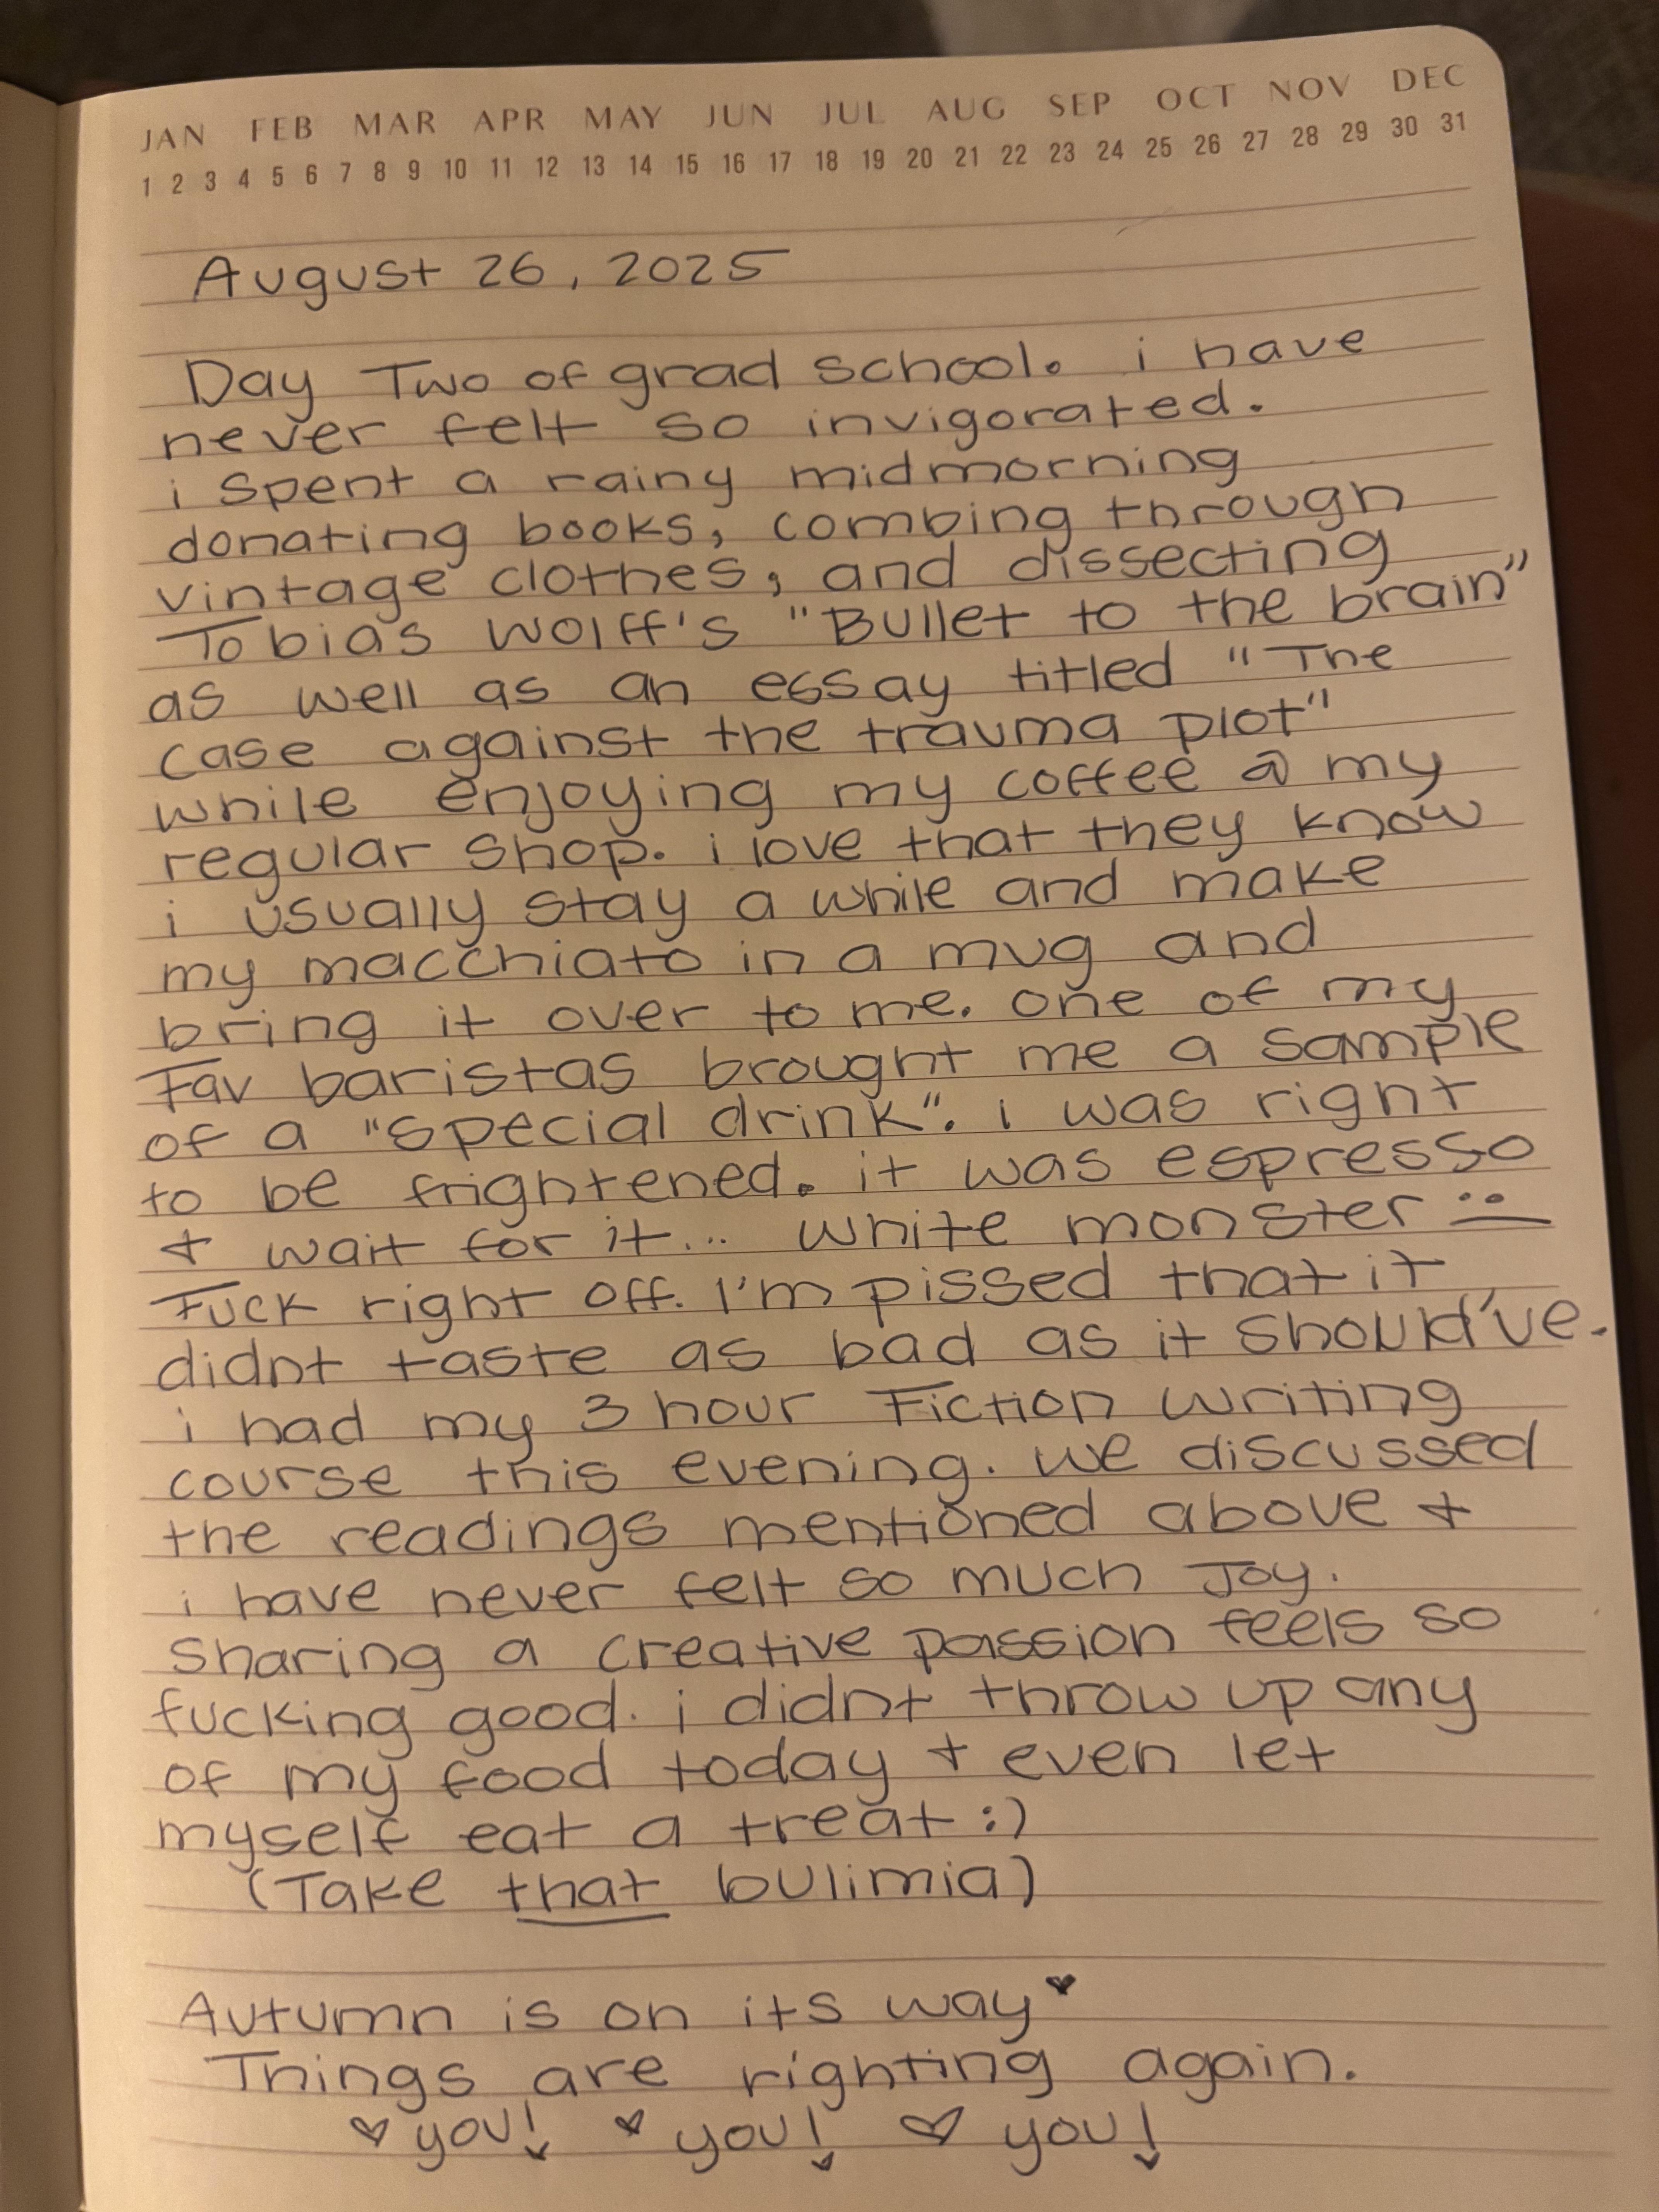 JAN FEB MAR APR MAY JUN JUL AUG SEP OCT NOV DEC
1 2 3 4 5 6 7 8 9 10 11 12 13 14 15 16 17 18 19 20 21 22 23 24 25 26 27 28 29 30 31
August 26, 2025
Day Two of grad school. i have
never felt so invigorated.
i spent a rainy midmorning
donating books, combing through
vintage clothes, and dissecting
Tobias Wolff's "Bullet to the brain"
as well as an essay titled "The
case against the trauma plot"
while enjoying my coffee @ my
regular shop. i love that they know
i usually stay a while and make
my macchiato in a mug and
bring it over to me. one of my
Fav baristas brought me a sample
of a "special drink". i was right
to be frightened. it was espresso
+ wait for it... white monster :|
Fuck right off. I'm pissed that it
didnt taste as bad as it should've.
i had my 3 hour Fiction writing
course this evening. we discussed
the readings mentioned above +
i have never felt so much Joy.
Sharing a creative passion feels so
fucking good. i didnt throw up any
of my food today + even let
myself eat a treat :)
(Take that bulimia)
Autumn is on its way ♥
Things are righting again.
♡ you! ♥ you! ♡ you!